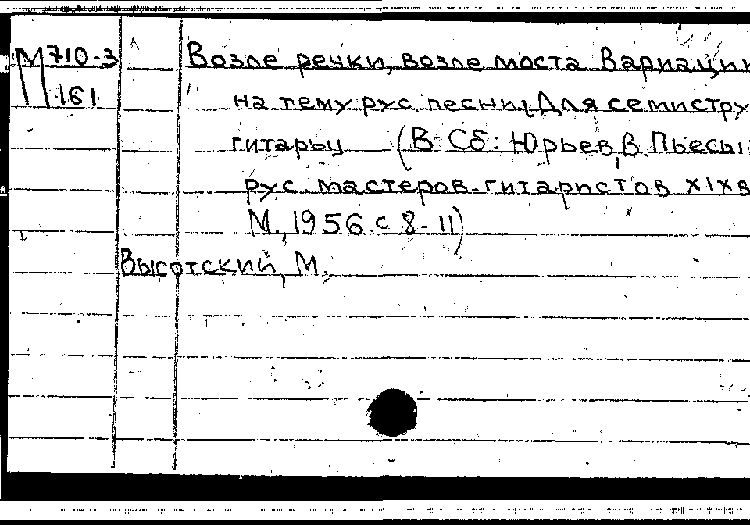 М 710-3 Возле речки, возле моста Вариации
161 на тему рус песни. Для семистру
гитары (В Сб: Юрьев, В. Пьесы
рус. мастеров-гитаристов XIX в
М, 1956. с 8-11)
Высотский, М.